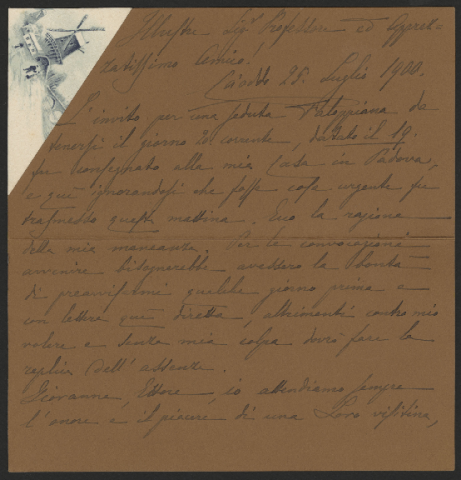 Illustre Sigr Professore ed Apprez-
zatissimo Amico!
Caodo 25. Luglio 1900.
L'invito per una seduta da
tenersi il giorno 20 corrente, datato il 19.
fu consegnato alla mia Casa in Padova,
e qui ignorandosi che fosse cosa urgente fu
trasmesso questa mattina. Ecco la ragione
della mia mancanza. Per le convocazioni
avvenire bisognerebbe avessero la bontà
di preavvisarmi qualche giorno prima e
con lettera qui diretta, altrimenti contro mio
volere e senza mia colpa dovrò fare la
replica dell'assenza.
Giovanna, Ettore, io attendiamo sempre
l'onore e il piacere di una Loro visitina,